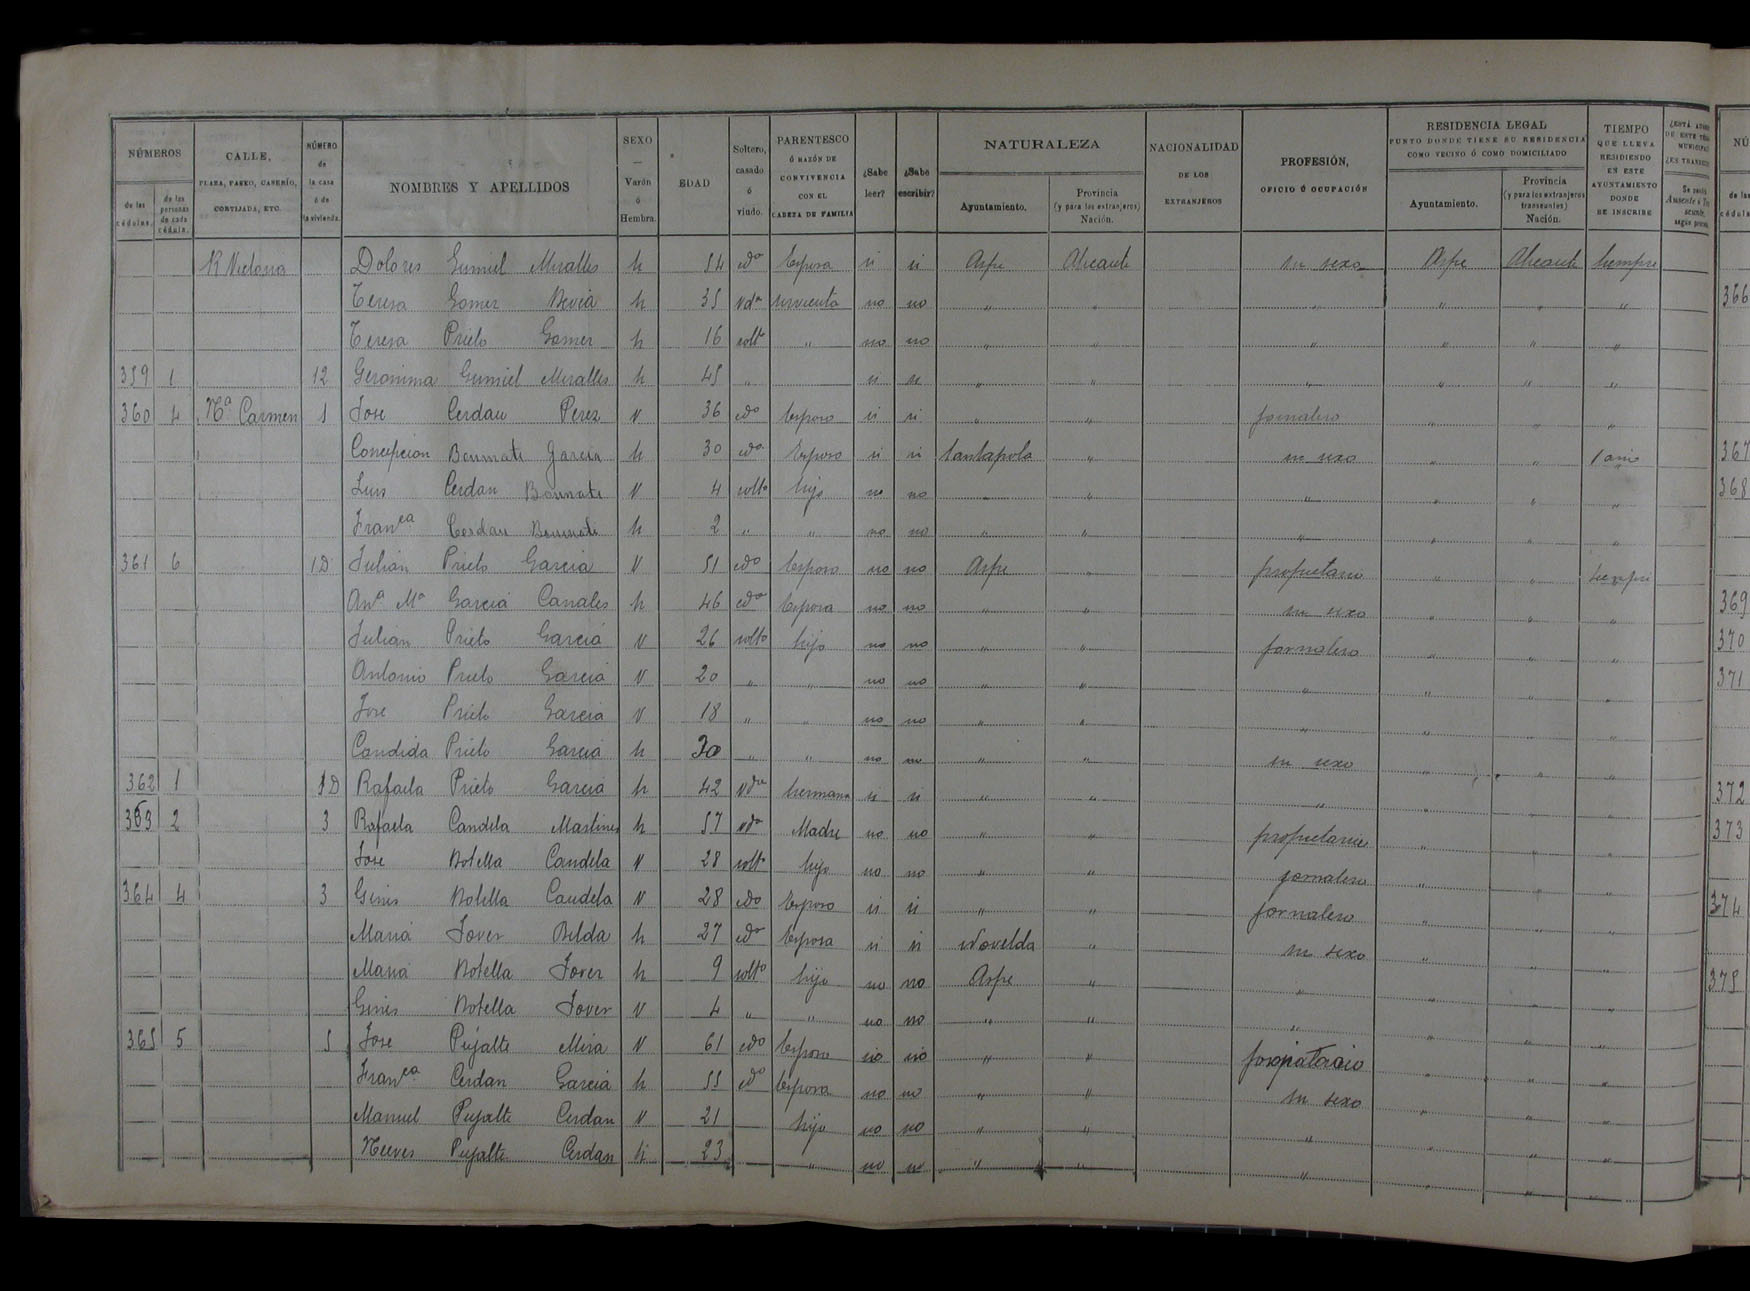 NÚMEROS
de las cédulas.
de las personas de cada cédula.
CALLE,
PLAZA, PASEO, CASERÍO,
CORTIJADA, ETC.
NÚMERO
de
la casa
ó de
la vivienda.
NOMBRES Y APELLIDOS
SEXO
—
Varón
ó
Hembra.
EDAD
Soltero,
casado
ó
viudo.
PARENTESCO
Ó RAZÓN DE
CONVIVENCIA
CON EL
CABEZA DE FAMILIA
¿Sabe
leer?
¿Sabe
escribir?
NATURALEZA
Ayuntamiento.
Provincia
(y para los extranjeros)
Nación.
NACIONALIDAD
DE LOS
EXTRANJEROS
PROFESIÓN,
OFICIO Ó OCUPACIÓN
RESIDENCIA LEGAL
PUNTO DONDE TIENE SU RESIDENCIA
COMO VECINO Ó COMO DOMICILIADO
Ayuntamiento.
Provincia
(y para los extranjeros
transeuntes)
Nación.
TIEMPO
QUE LLEVA
RESIDIENDO
EN ESTE
AYUNTAMIENTO
DONDE
SE INSCRIBE
R Victoria Dolores Gumiel Miralles h 54 cda Esposa si si Aspe Alicante su sexo Aspe Alicante Siempre
Teresa Gomez Bevia h 35 vda sirvienta no no " " " " " "
Teresa Prieto Gomez h 16 solt " no no " " " " " "
359 1 12 Geronima Gumiel Miralles h 45 " si si " " " " " "
360 4 Nª Carmen 1 Jose Cerdan Perez V 36 cdo Esposo si si " " jornalero " " "
Concepcion Bonmati Garcia h 30 cda Esposo si si Santapola " su sexo " " 1 año
Luis Cerdan Bonmati V 4 solto hijo no no " " " " " "
Franca Cerdan Bonmati h 2 " " no no " " " " " "
361 6 1D Julian Prieto Garcia V 51 cdo Esposo no no Aspe " propietario " " siempre
Ana Mª Garcia Canales h 46 cda Esposa no no " " su sexo " " "
Julian Prieto Garcia V 26 solto hijo no no " " jornalero " " "
Antonio Prieto Garcia V 20 " " no no " " " " " "
Jose Prieto Garcia V 18 " " no no " " " " " "
Candida Prieto Garcia h 30 " " no no " " su sexo " " "
362 1 1D Rafaela Prieto Garcia h 42 vda hermana si si " " " " " "
363 2 3 Rafaela Candela Martinez h 57 vda Madre no no " " propietaria " " "
Jose Botella Candela V 28 solto hijo no no " " jornalero " " "
364 4 3 Gines Botella Candela V 28 cdo Esposo si si " " jornalero " " "
Maria Jover Belda h 27 cda Esposa si si Novelda " su sexo " " "
Maria Botella Jover h 9 solto hijo no no Aspe " " " " "
Gines Botella Jover V 4 " " no no " " " " " "
365 5 5 Jose Pujalte Mira V 61 cdo Esposo no no " " propietario " " "
Franca Cerdan Garcia h 55 cda Esposa no no " " su sexo " " "
Manuel Pujalte Cerdan V 21 hijo no no " " " " " "
Nieves Pujalte Cerdan h 23 " no no " " " " " "
366
367
368
369
370
371
372
373
374
375